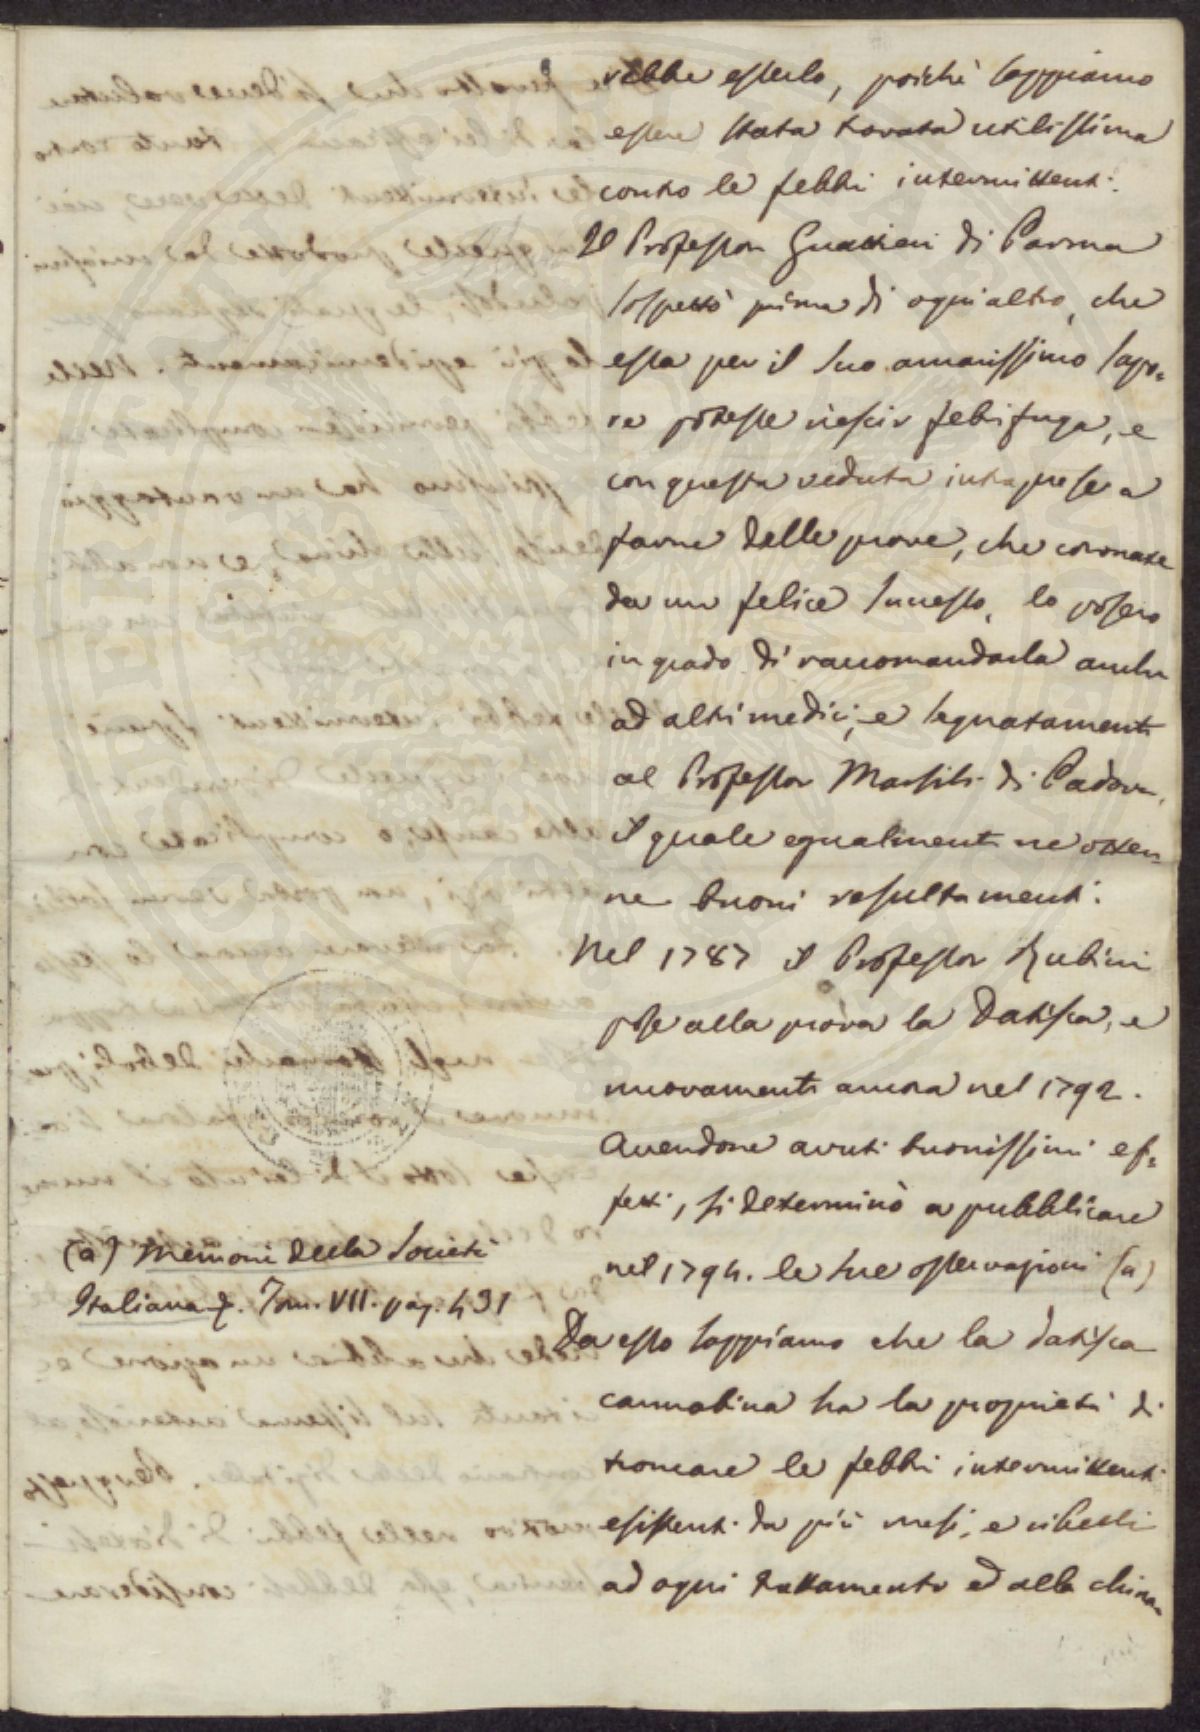 rebbe esserlo, poichè sappiamo
essere stata trovata utilissima
contro le febbri intermittenti.
Il Professor Guattieri di Parma
sospettò prima di ogni altro, che
essa per il suo amarissimo sapo-
re potesse riescir febrifuga, e
con questa veduta intraprese a
farne delle prove, che coronate
da un felice successo, lo posero
in grado di raccomandarla anche
ad altri medici, e segnatamente
al Professor Marsili di Padova,
il quale egualmente ne otten-
ne buoni resultamenti.
Nel 1787 il Professor Rubini
pose alla prova la Datisca, e
nuovamente ancora nel 1792.
Avendone avuti buonissimi ef-
fetti, si determinò a pubblicare
nel 1794. le sue osservazioni (a)
Da esso sappiamo che la datisca
cannabina ha la proprietà di
troncare le febbri intermittenti
esistenti da più mesi, e ribelli
ad ogni trattamento ed alla china-
(a) Memorie della Società
Italiana &. Tom. VII. pag. 431